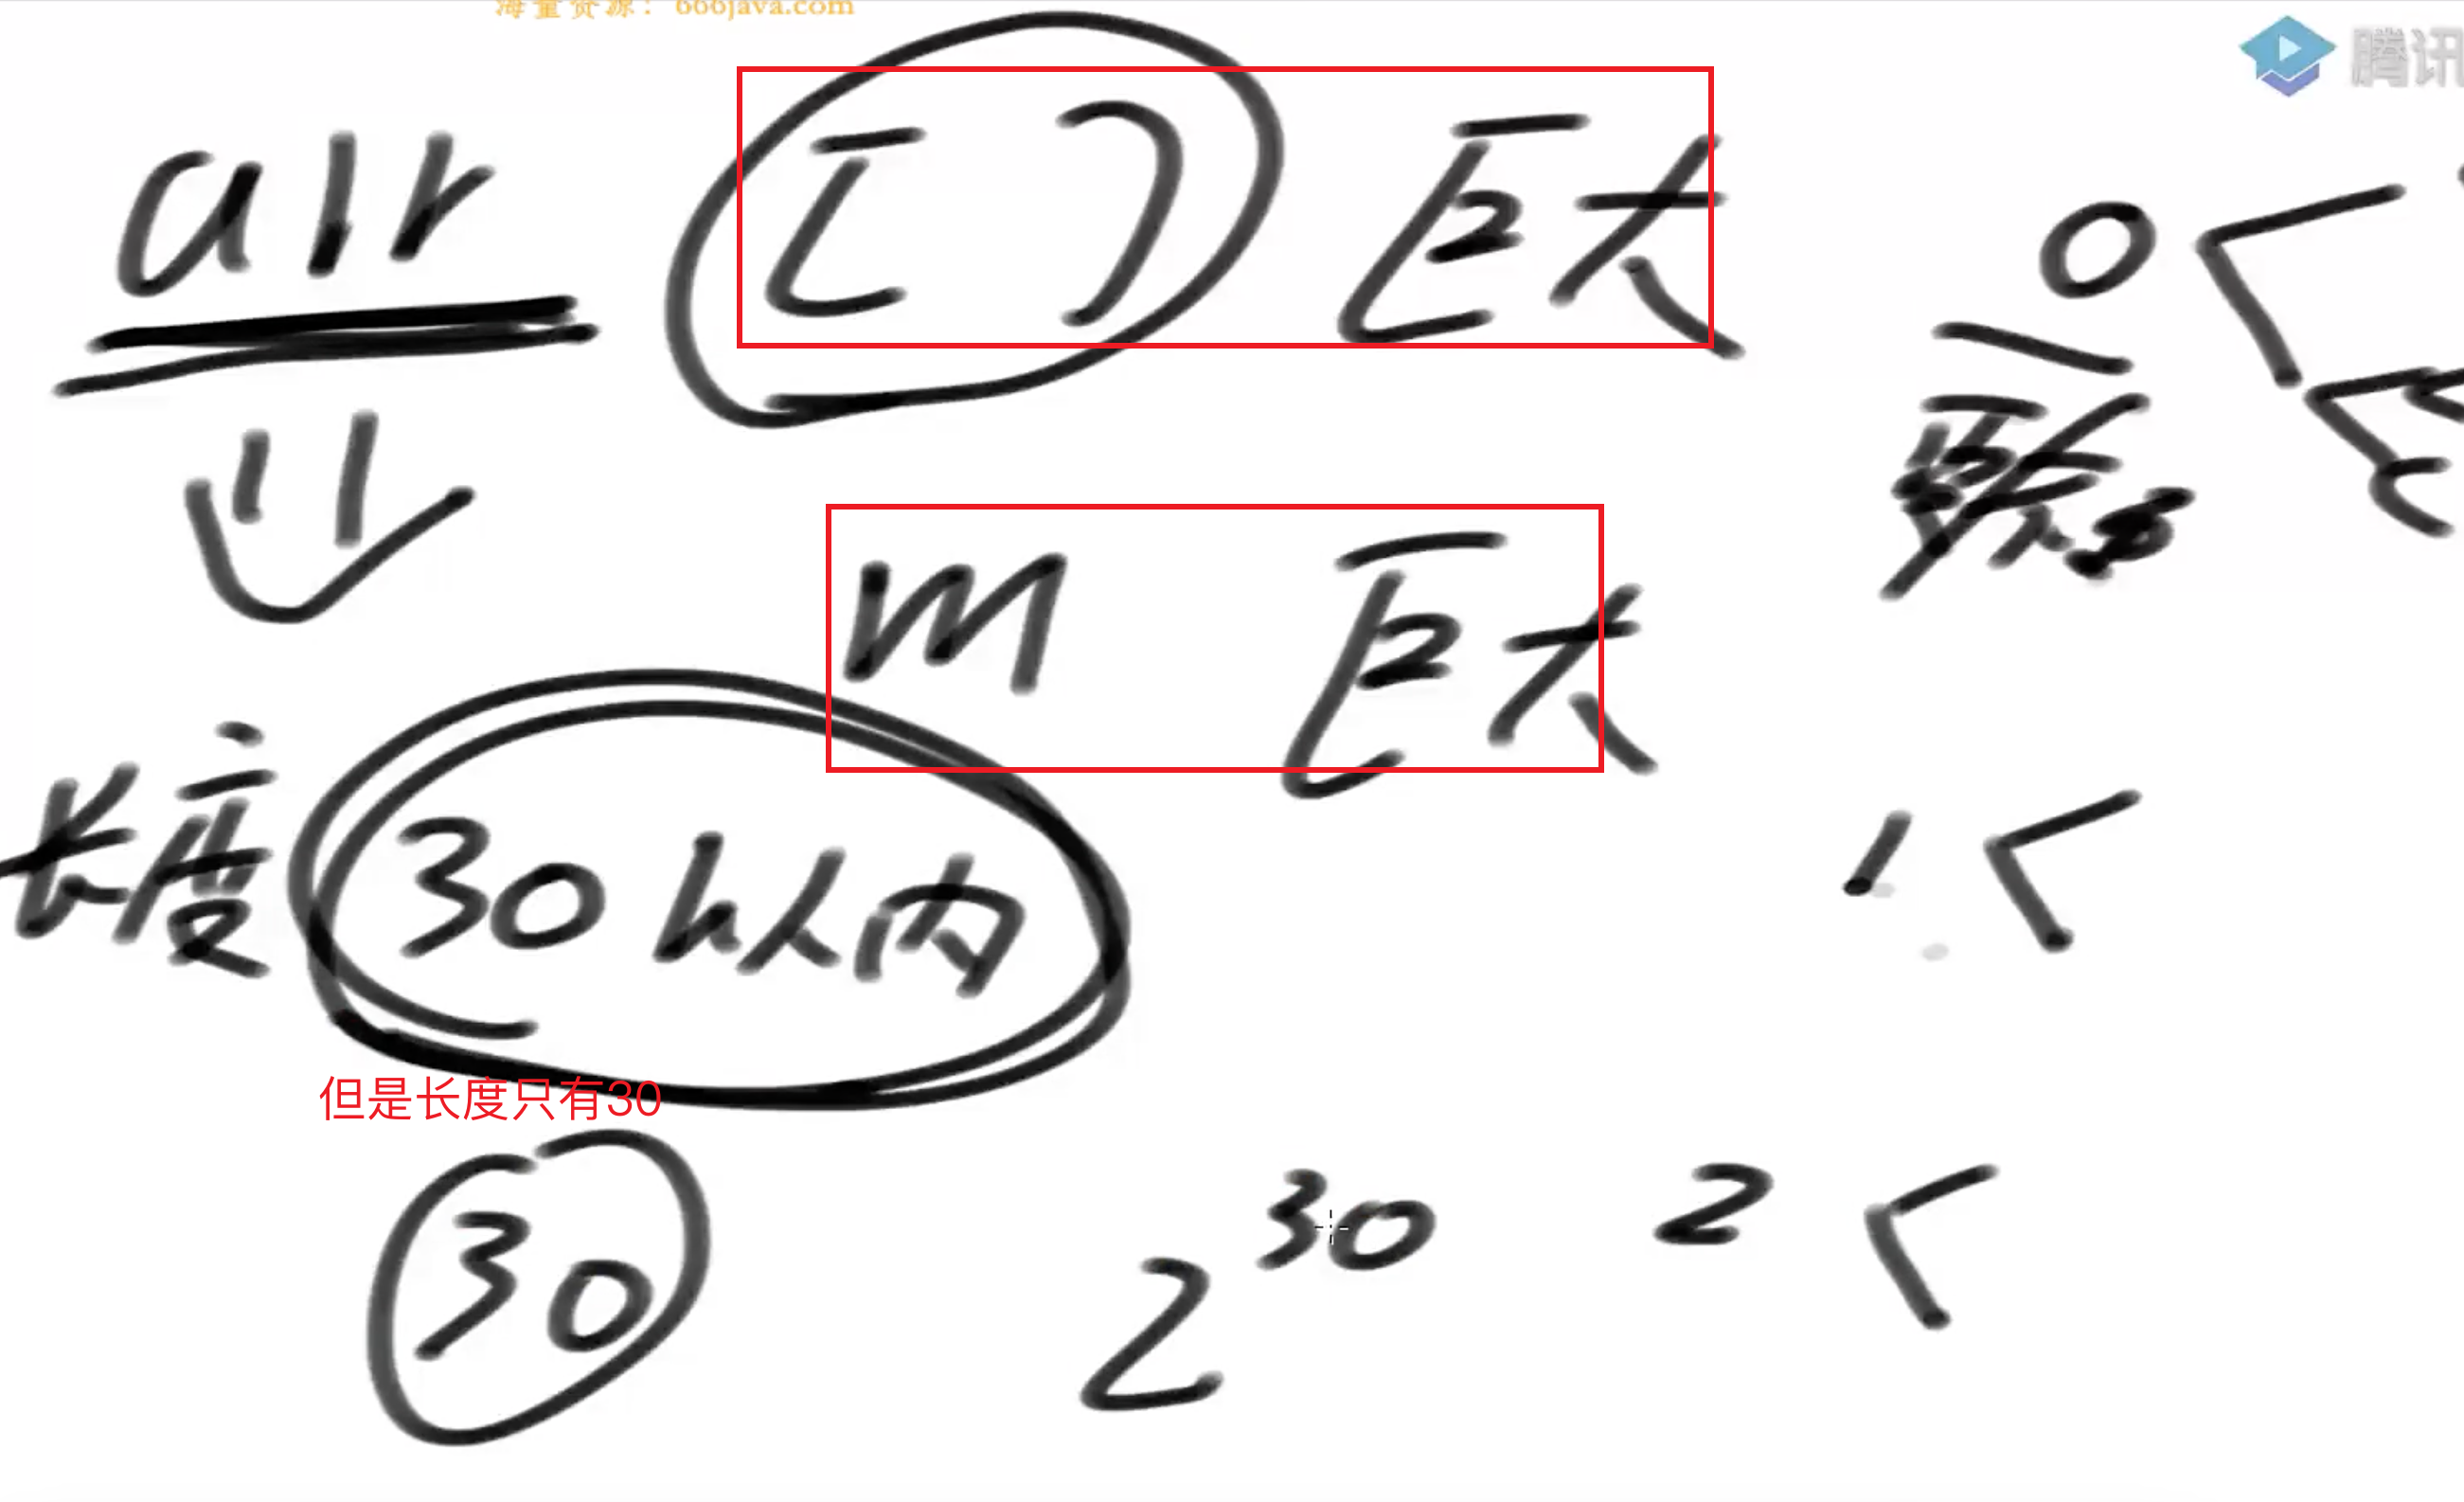 海量资源：666java.com
腾讯
arr [ ] 巨大
0
累乘
m 巨大
长度 30以内
1
但是长度只有30
30
2^30
2